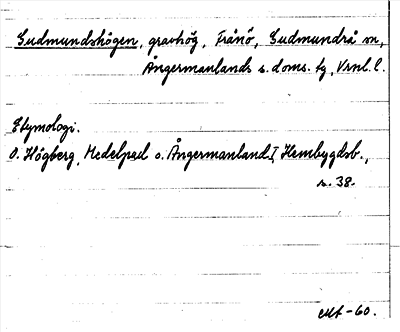 Gudmundshögen, gravhög, Frånö, Gudmundrå sn,
Ångermanlands s. doms. tg, Vrnl. l.
Etymologi.
O. Högberg, Medelpad o. Ångermanland I, Hembygdsb.,
s. 38.
okt -60.